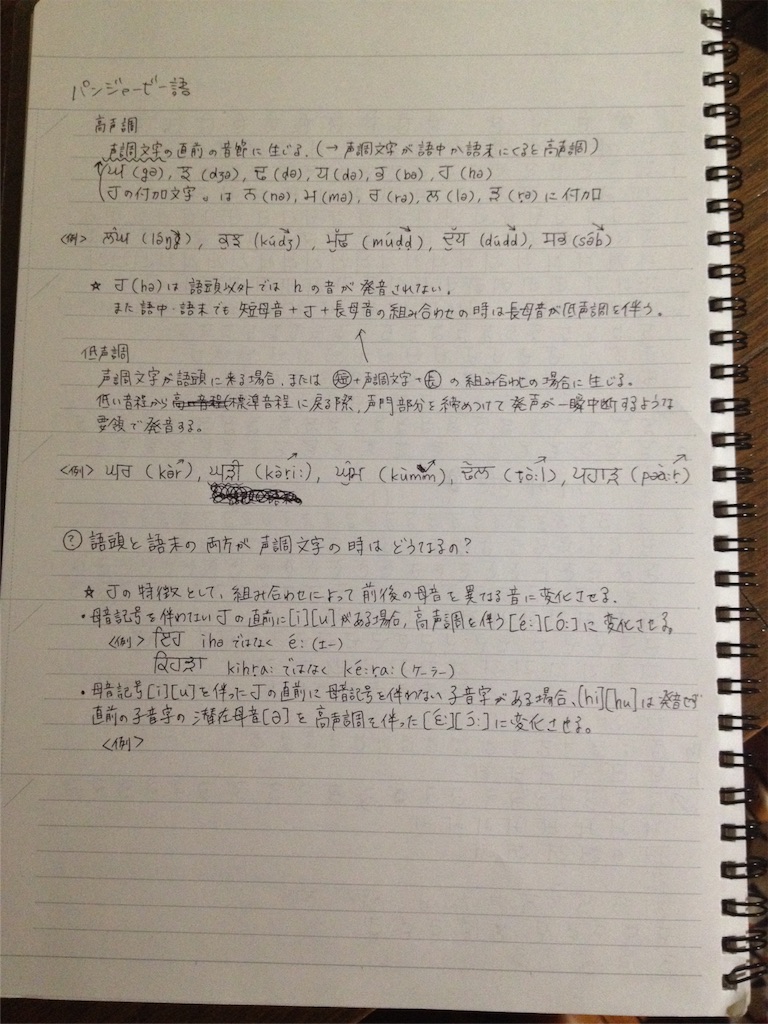 パンジャービー語
高声調
声調文字の直前の音節に生じる。(→ 声調文字が語中か語末にくると高声調)
ਘ (gə), ਝ (dʒə), ਢ (ḍə), ਧ (də), ਭ (bə), ਹ (hə)
ਹの付加文字 は ਨ (nə), ਮ (mə), ਰ (rə), ਲ (lə), ੜ (ṛə) に付加
<例> (kúdʒ), (múḍḍ), (dúdd), (sə́b)
☆ ਹ (hə) は語頭以外では h の音が発音されない。
また語中・語末でも短母音+ਹ+長母音の組み合わせの時は長母音が低声調を伴う。
低声調
声調文字が語頭に来る場合、または短+声調文字+長の組み合わせの場合に生じる。
低い音程から標準音程に戻る際、声門部分を締めつけて発声が一瞬中断するような
要領で発音する。
<例> ਘਰ (kə̀r), ਘੜੀ (kə̀ṛi:), (kùmm), ਢੋਲ (ṭò:l), ਪਹਾੜ (pəà:ṛ)
? 語頭と語末の両方が声調文字の時はどうなるの?
☆ ਹの特徴として、組み合わせによって前後の母音を異なる音に変化させる。
・母音記号を伴わないਹの直前に[i][u]がある場合、高声調を伴う[é:][ó:]に変化させる。
<例> ਇਹ ihə ではなく é: (エー)
ਕਿਹੜਾ kihṛa: ではなく ké:ṛa: (ケーラー)
・母音記号[i][u]を伴ったਹの直前に母音記号を伴わない子音字がある場合、[hi][hu]は発音せず
直前の子音字の潜在母音[ə]を高声調を伴った[ɛ́:][ɔ́:]に変化させる。
<例>